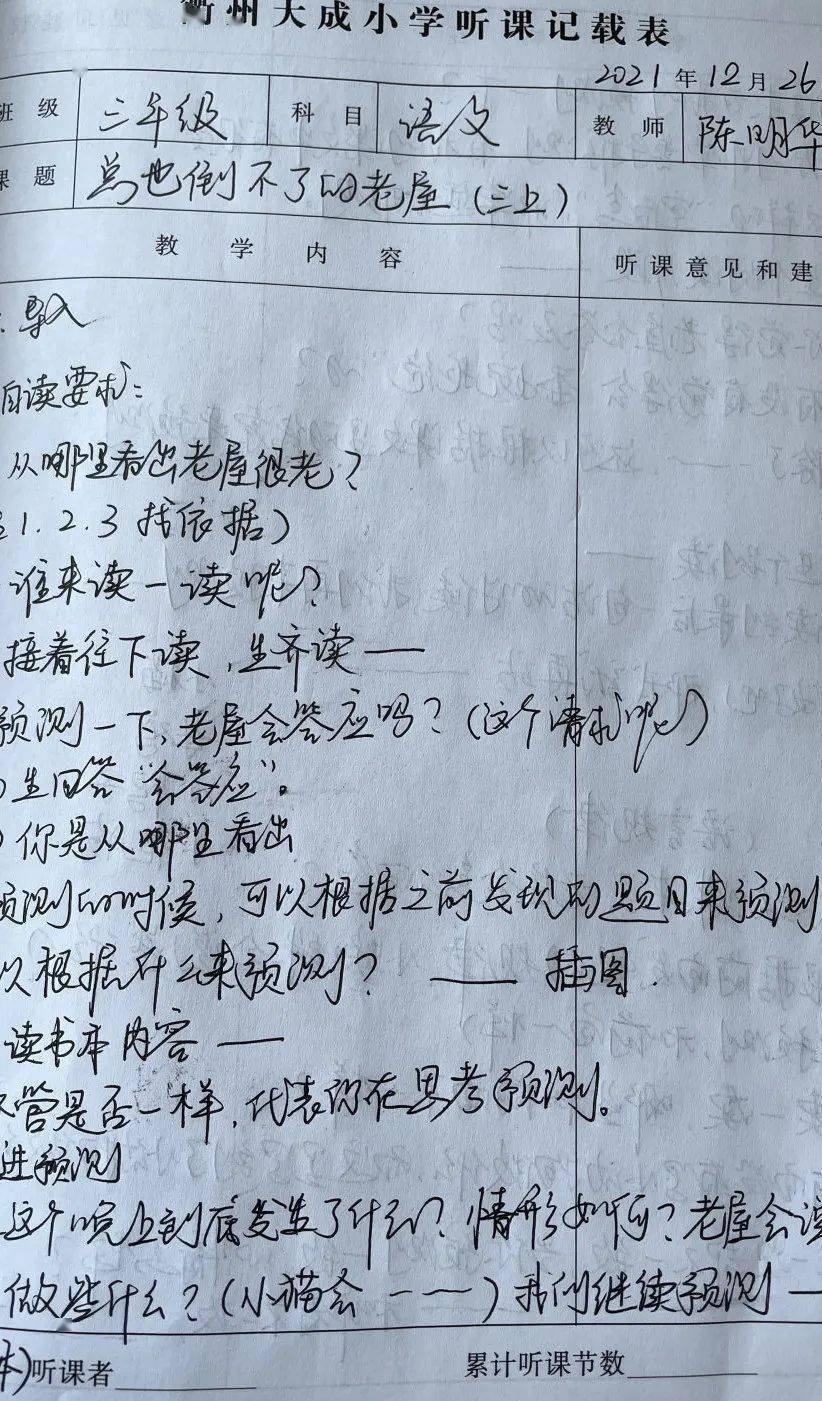 衢州大成小学听课记载表
2021年12月26
班级 三年级 科目 语文 教师 陈明华
课题 总也倒不了的老屋(三上)
教学内容 听课意见和建
导入
自读要求:
从哪里看出老屋很老?
1.2.3找依据)
谁来读一读呢?
接着往下读,生齐读——
预测一下,老屋会答应吗?(这个请求呢)
)生回答“会答应”。
)你是从哪里看出
预测的时候,可以根据之前发现的题目来预测
以根据什么来预测? —— 插图.
读书本内容 ——
不管是否一样,代表你在思考预测。
进预测
这个晚上到底发生了什么?情形如何?老屋会
做些什么?(小猫会 ——)我们继续预测—
听课者 累计听课节数